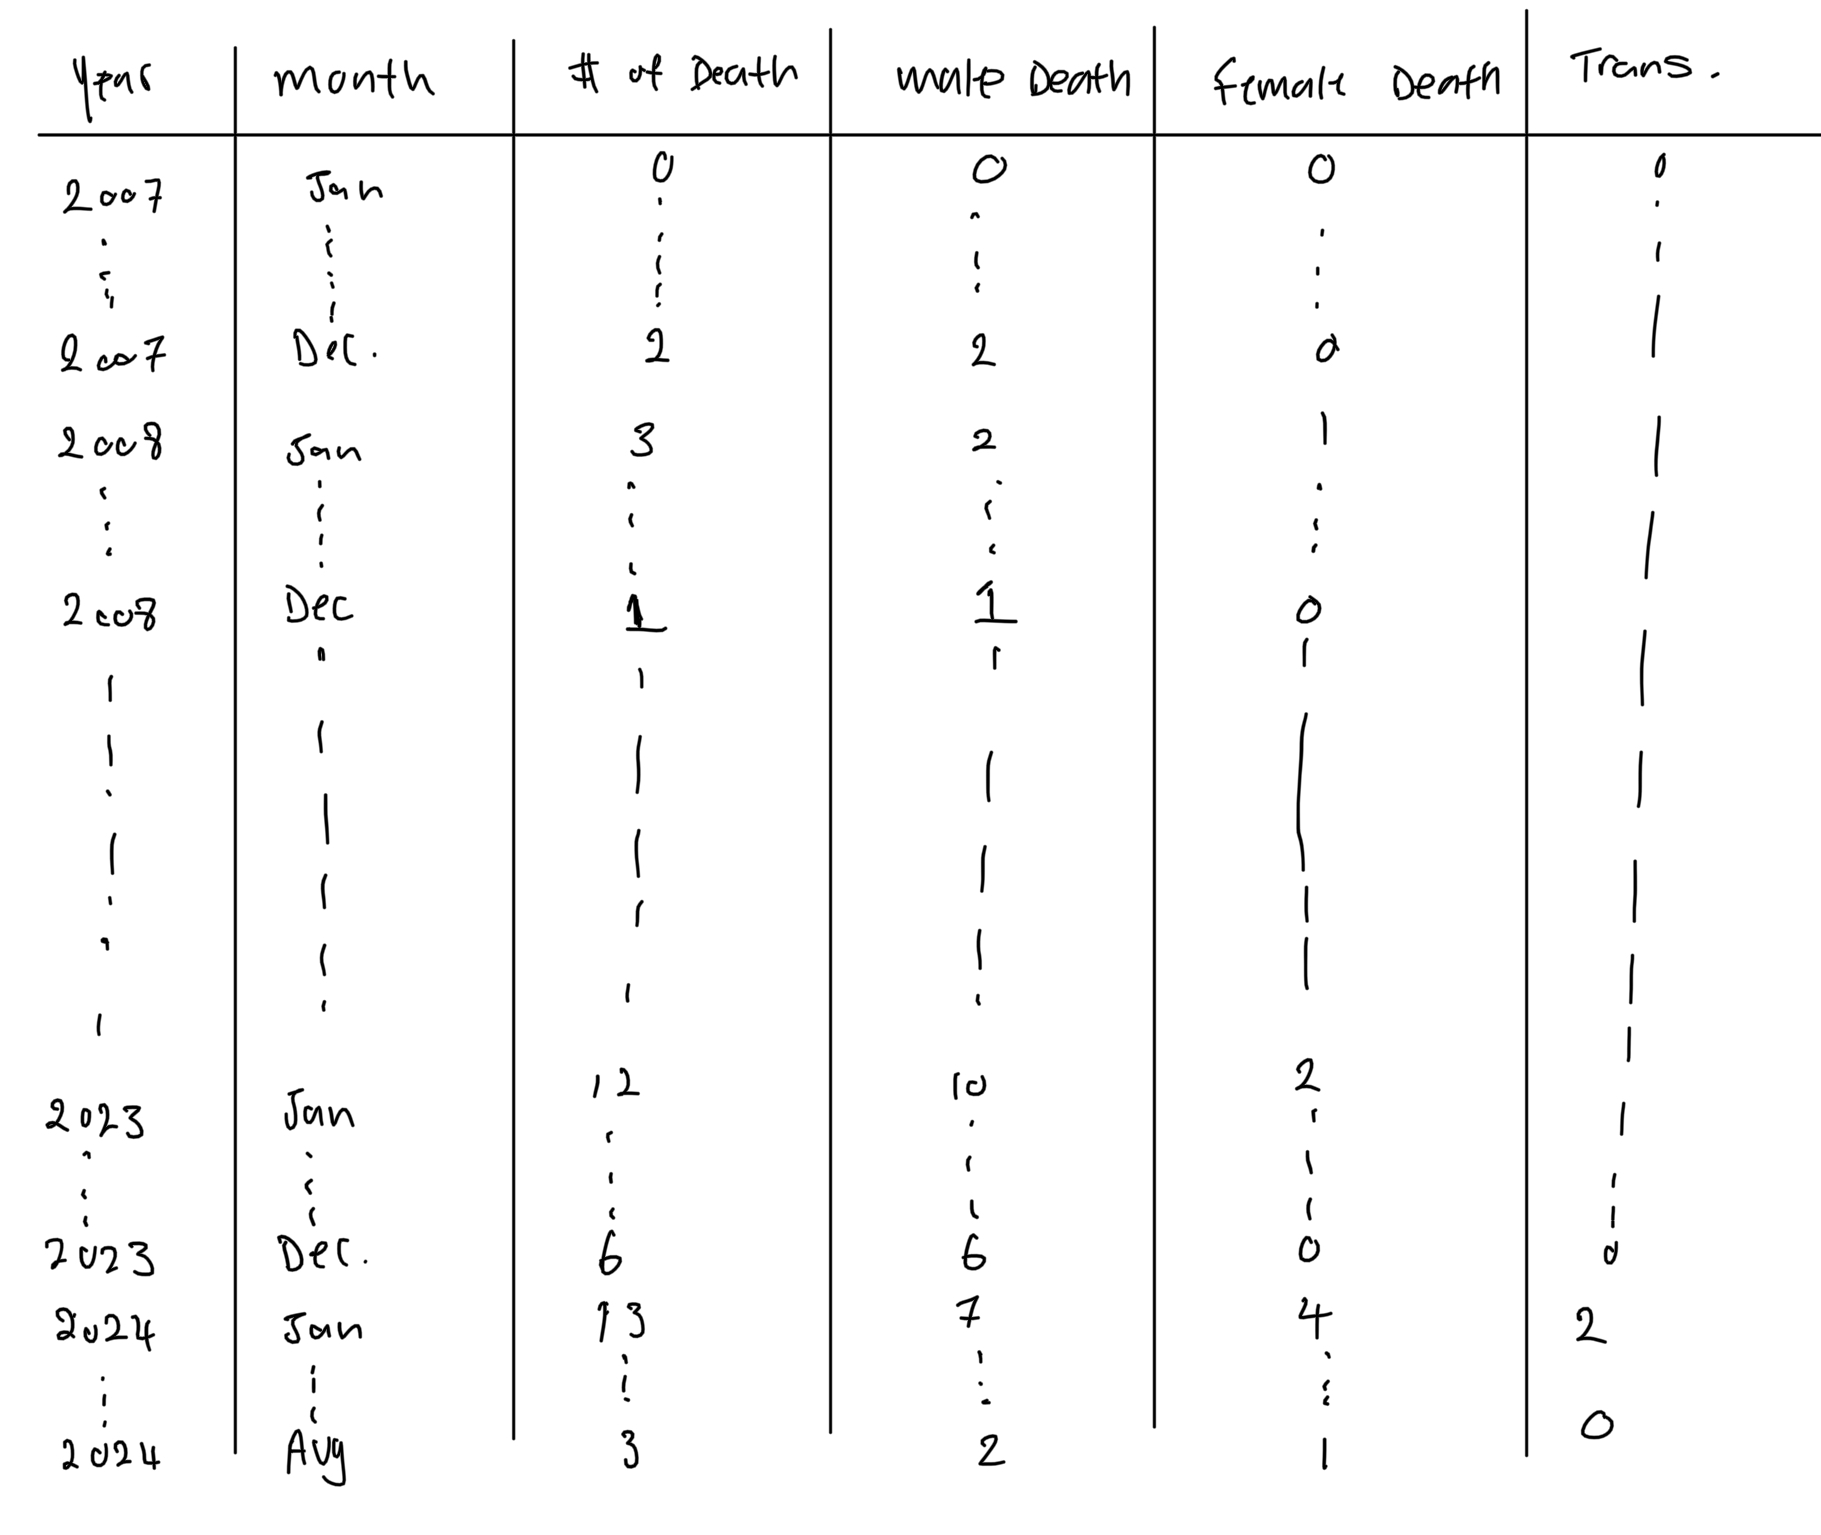 Year month # of Death male Death female Death Trans.
2007 Jan 0 0 0 0
2007 Dec. 2 2 0
2008 Jan 3 2 1
2008 Dec 1 1 0
2023 Jan 12 10 2
2023 Dec. 6 6 0 0
2024 Jan 13 7 4 2
2024 Aug 3 2 1 0